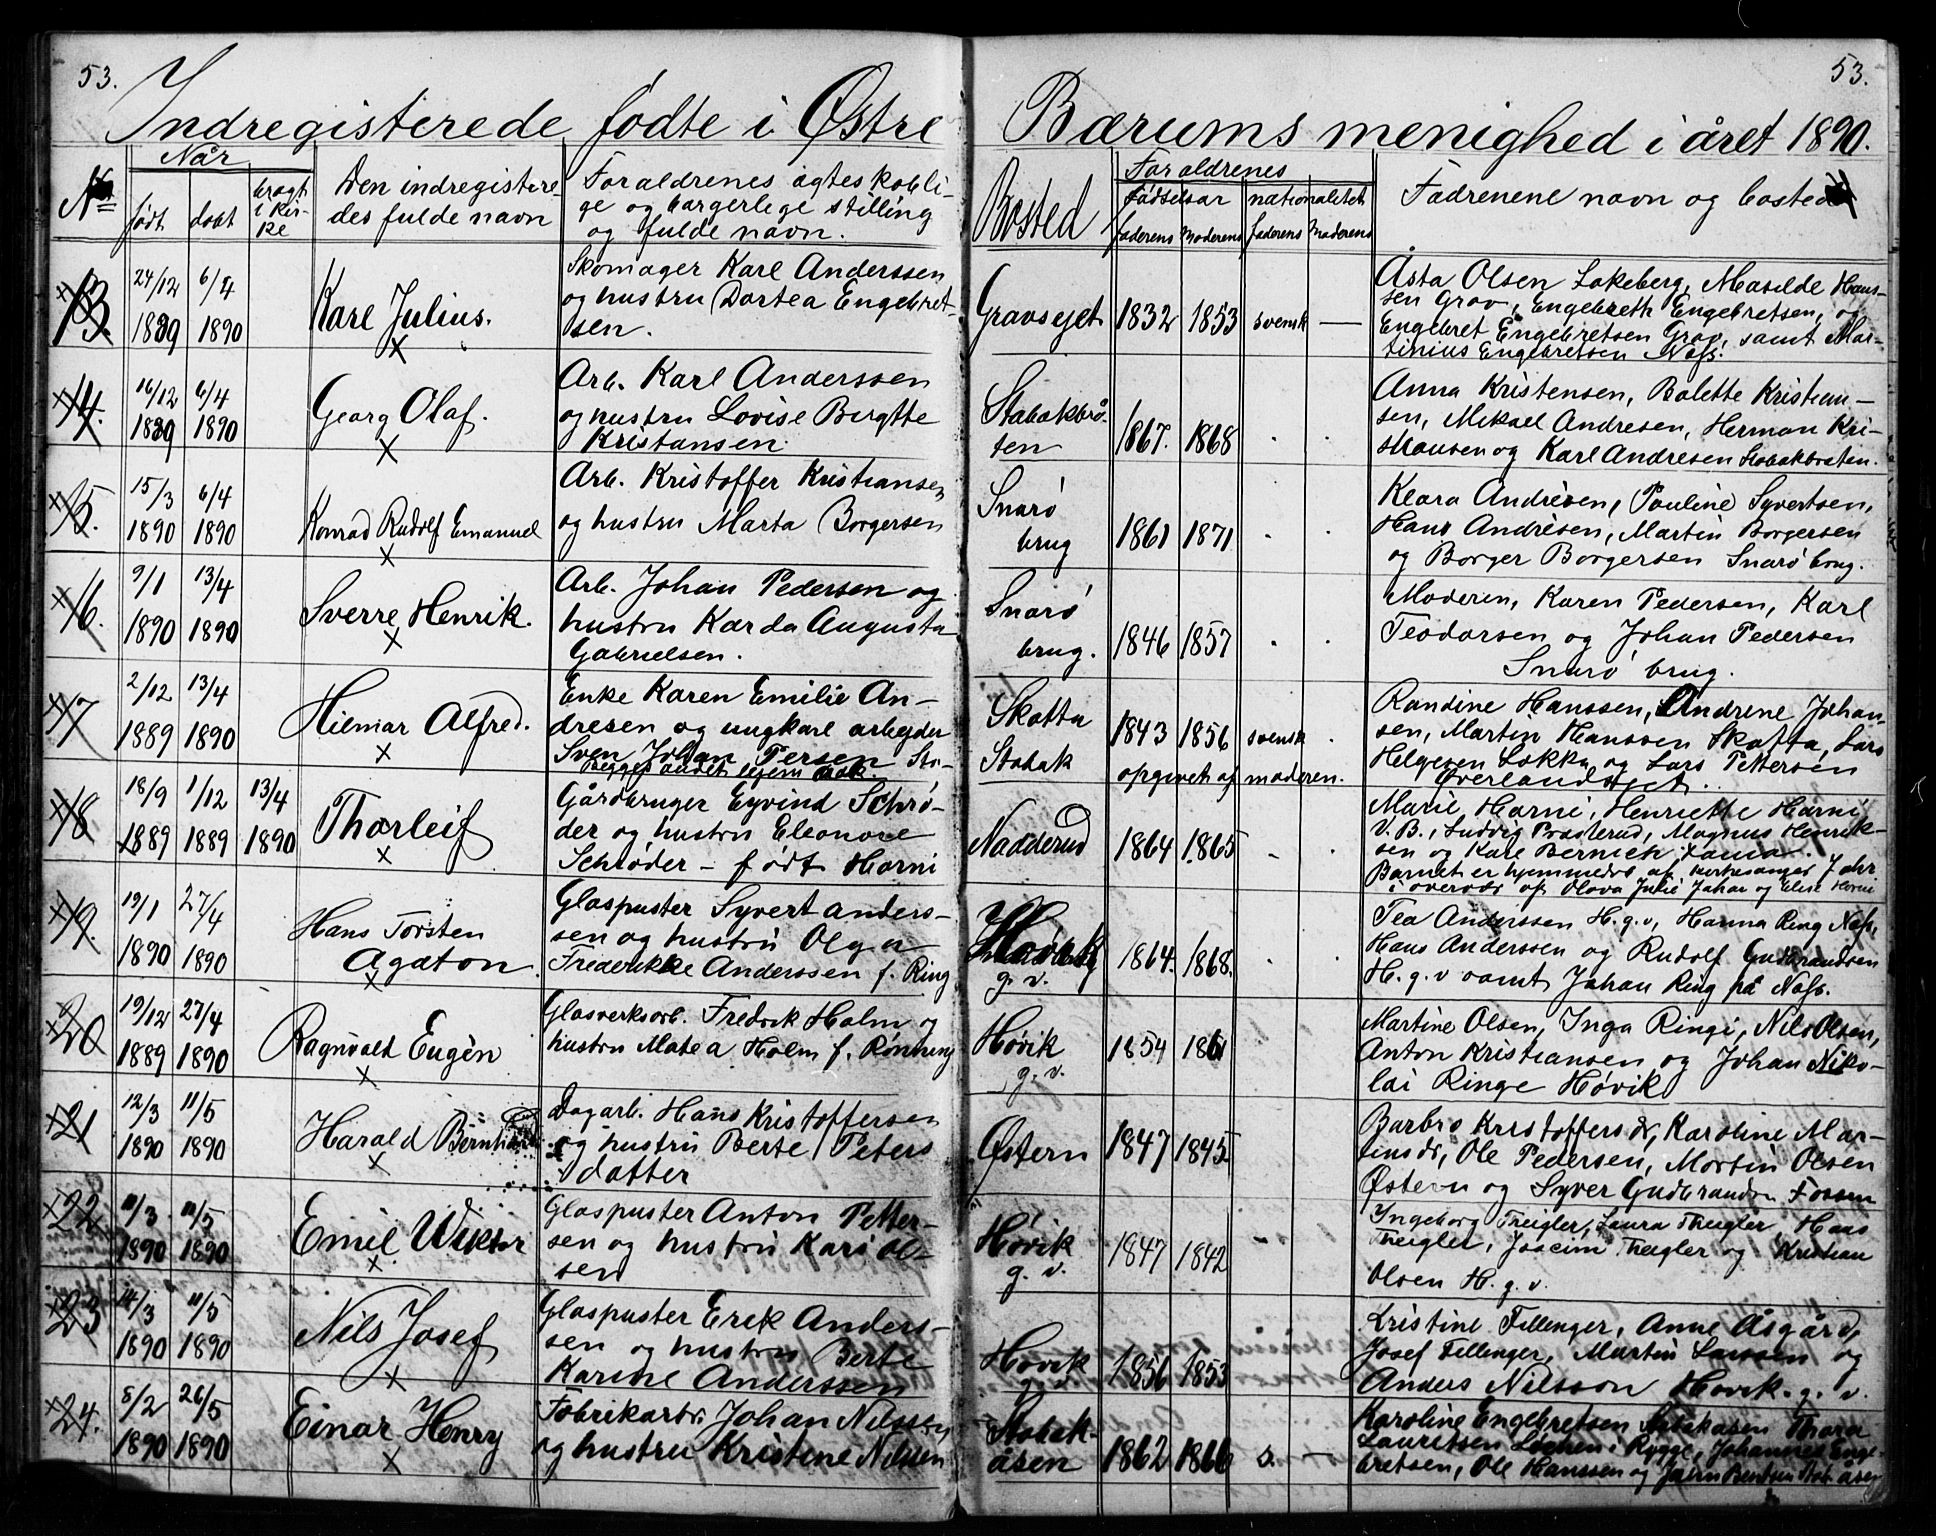 53.
53.
Indregisterede fødte i Østre Bærums menighed i året 1890.
No
Når
født døbt bragt i Kirke
Den indregistere
des fulde navn
Forældrenes ægteskabeli
ge og borgerlege stilling
og fulde navn.
Bosted
Forældrenes
Fødselsår nationalitet
faderens Moderens faderens Moderens
Fadrenene navn og bosted
13.
24/12 1889
6/4 1890
Karl Julius.
X
Skomager Karl Anderssen
og hustru Dortea Engebret-
sen.
Gravsejet
1832 1853 svensk —
Åsta Olsen Løkeberg, Masilde Hans-
sen Grav, Engebreth Engebretsen, og
Engebret Engebretsen Grav, samt Mar-
tinius Engebretsen Næss.
14.
16/12 1889
6/4 1890
Georg Olaf.
X
Arb. Karl Anderssen
og hustru Lovise Birgitte
Kristansen.
Stabækbrå-
ten
1867. 1868
Anna Kristensen, Bolette Kristian-
sen, Mikael Andresen, Herman Kri-
stiansen og Karl Andresen Stabækbråten.
15.
15/3 1890
6/4 1890
Konrad Rudolf Emanuel
X
Arb. Kristoffer Kristiansen
og hustru Marta Borgersen
Snarø
brug
1861 1871
Klara Andresen, Pauline Syvertsen,
Hans Andresen, Martin Borgersen
og Borger Borgersen Snarø brug.
16.
9/1 1890
13/4 1890
Sverre Henrik.
X
Arb. Johan Pedersen og
hustru Karda Augusta
Gabrielsen.
Snarø
brug.
1846 1857
Moderen, Karen Pedersen, Karl
Teodorsen og Johan Pedersen
Snarø brug.
17
2/12 1889
13/4 1890
Hilmar Alfred.
X
Enke Karen Emilie An-
dresen og ungkarl arbejder
Sven Johan Persen Sta-
Skatta
Stabæk
1843 1856 svensk
opgivet af moderen.
Randine Hanssen, Andrene Johan-
sen, Martin Hanssen Skatta, Lars
Helgesen Løkka og Lars Pettersen
Øverlandejet.
18
18/9 1889
1/12 1889
13/4 1890
Thorleif
X
Gårdbruger Eyvind Schrø-
der og hustru Eleonore
Schrøder – født Horni
Nadderud
1864 1865
Marie Horni, Henriette Horni
V. B., Ludvig Præsterud, Magnus Henrik-
sen og Karl Bernich
Barnet er hjemmedøbt af kirkesanger
i overvær af Olava Julie Johan og Elise Horni
19.
19/1 1890
27/4 1890
Hans Torsten
Agaton.
X
Glaspuster Syvert Anders-
sen og hustru Olga
Frederikke Anderssen f. Ring
Høvik
g. v.
1864. 1868.
Tea Anderssen H. g. v, Hanna Ring Næss,
Hans Anderssen og Rudolf Gudbrandsen
H. g. v samt Johan Ring på Næss.
20
19/12 1889
27/4 1890
Ragnvalt Eugèn
X
Glasverksarb. Fredrik Holm og
hustru Matea Holm f. Rønning
Høvik
g. v.
1854 1861
Martine Olsen, Inga Ringi, Nils Olsen,
Anton Kristiansen og Johan Niko-
lai Ringe Høvik
21
12/3 1890
11/5 1890
Harald Bernhard
X
Dagarb. Hans Kristoffersen
og hustru Berte Peters
datter
Østern
1847 1845
Barbro Kristoffersdr, Karoline Mar-
tinsdr, Ole Pedersen, Martin Olsen
Østern og Syver Gudbrandsn Fossen
22
11/3 1890
11/5 1890
Emil Wiktor
X
Glaspuster Anton Petter-
sen og hustru Kari Ol-
sen
Høvik
g. v.
1847 1842
Ingeborg Theigler, Laura Theigler, Hans
Theigler, Joacim Theigler og Kristian
Olsen H. g. v.
23
14/3 1890
11/5 1890
Nils Josef
X
Glaspuster Erik Anders-
sen og hustru Berte
Karine Anderssen
Høvik
1856 1853
Kristine Fellenger, Anne Åsgård,
Josef Fellenger, Martin Larsson og
Anders Nilsson Høvik. g. v.
24.
8/2 1890
26/5 1890
Einar Henry
X
Fabrikarbr. Johan Nilssen
og hustru Kristine Nilssen
Stabæk-
åsen
1862 1866 s. —
Karoline Engebretsen Stabækåsen Thora
Lauritsen Lochen i Rygge, Johannes Enge-
bretsen, Ole Hanssen og Johan Bentsen Stabåsen